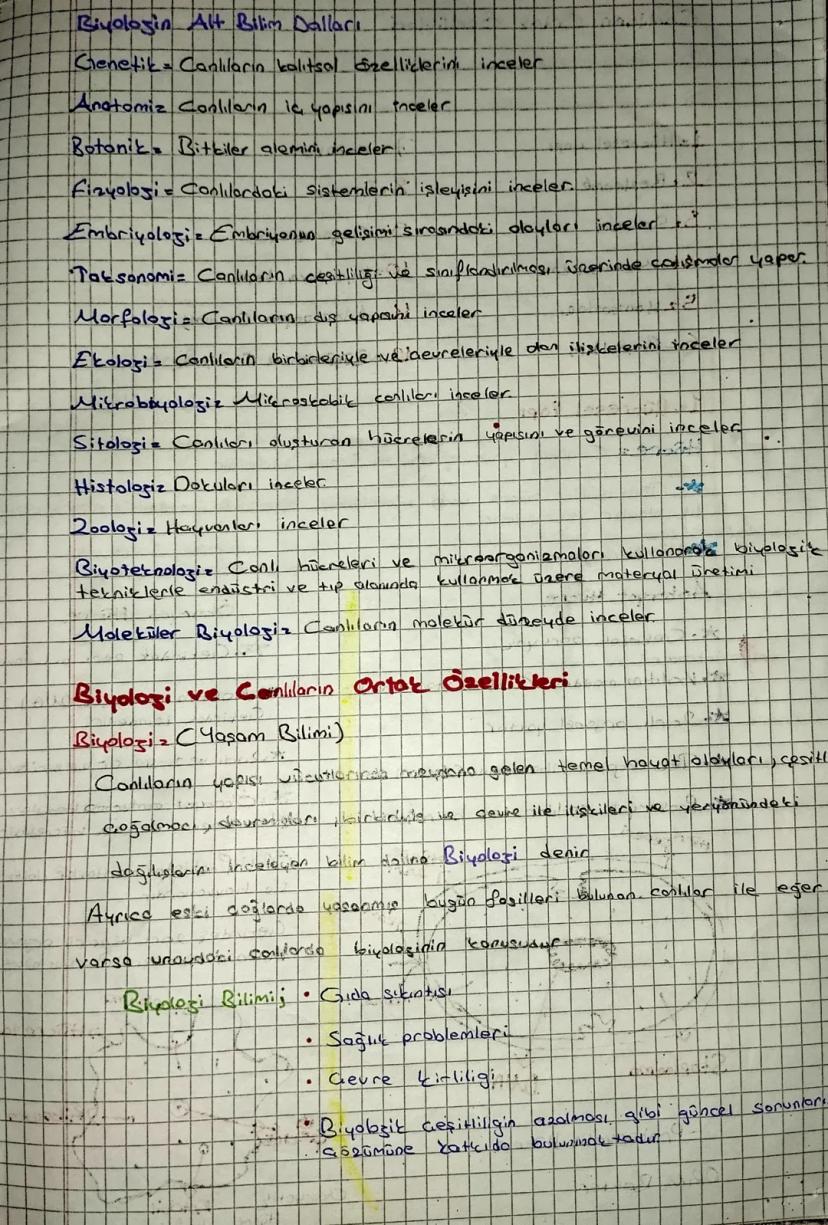 Biyolojin Alt Bilim Dalları
Genetik = Canlıların kalıtsal özelliklerini inceler
Anatomi = Canlıların iç yapısını inceler
Botanik = Bitkiler alemini inceler.
Fizyoloji = Canlılardaki sistemlerin işleyişini inceler.
Embriyoloji = Embriyonun gelişimi sırasındaki olayları inceler
Taksonomi = Canlıların çeşitliliği ve sınıflandırılması üzerinde çalışmalar yapar.
Morfoloji = Canlıların dış yapısını inceler
Ekoloji = Canlıların birbirleriyle ve çevreleriyle olan ilişkelerini inceler
Mikrobiyoloji = Mikroskobik canlıları inceler.
Sitoloji = Canlıları oluşturan hücrelerin yapısını ve görevini inceler.
Histoloji = Dokuları inceler.
Zooloji = Hayvanları inceler
Biyoteknoloji = Canlı hücreleri ve mikroorganizmaları kullanarak biyolojik
tekniklerle endüstri ve tıp alanında kullanmak üzere materyal üretimi
Moleküler Biyoloji = Canlıların molekür düzeyde inceler.
Biyoloji ve Canlıların Ortak Özellikleri
Biyoloji = (Yaşam Bilimi)
Canlıların yapısı vücutlarında meydana gelen temel hayat olayları, çeşitl
çoğalması, davranışları, birbiriyle ve çevre ile ilişkileri ve yeryüzündeki
dağılışlarını inceleyen bilim dalına Biyoloji denir
Ayrıca eski çağlarda yaşamış bugün fosilleri bulunan canlılar ile eğer
varsa uzaydaki canlılarda biyolojinin konusudur
Biyoloji Bilimi; • Gıda sıkıntısı
• Sağlık problemleri
• Çevre kirliliği
• Biyolojik çeşitliliğin azalması gibi güncel sorunları
çözümüne katkıda bulunmaktadır